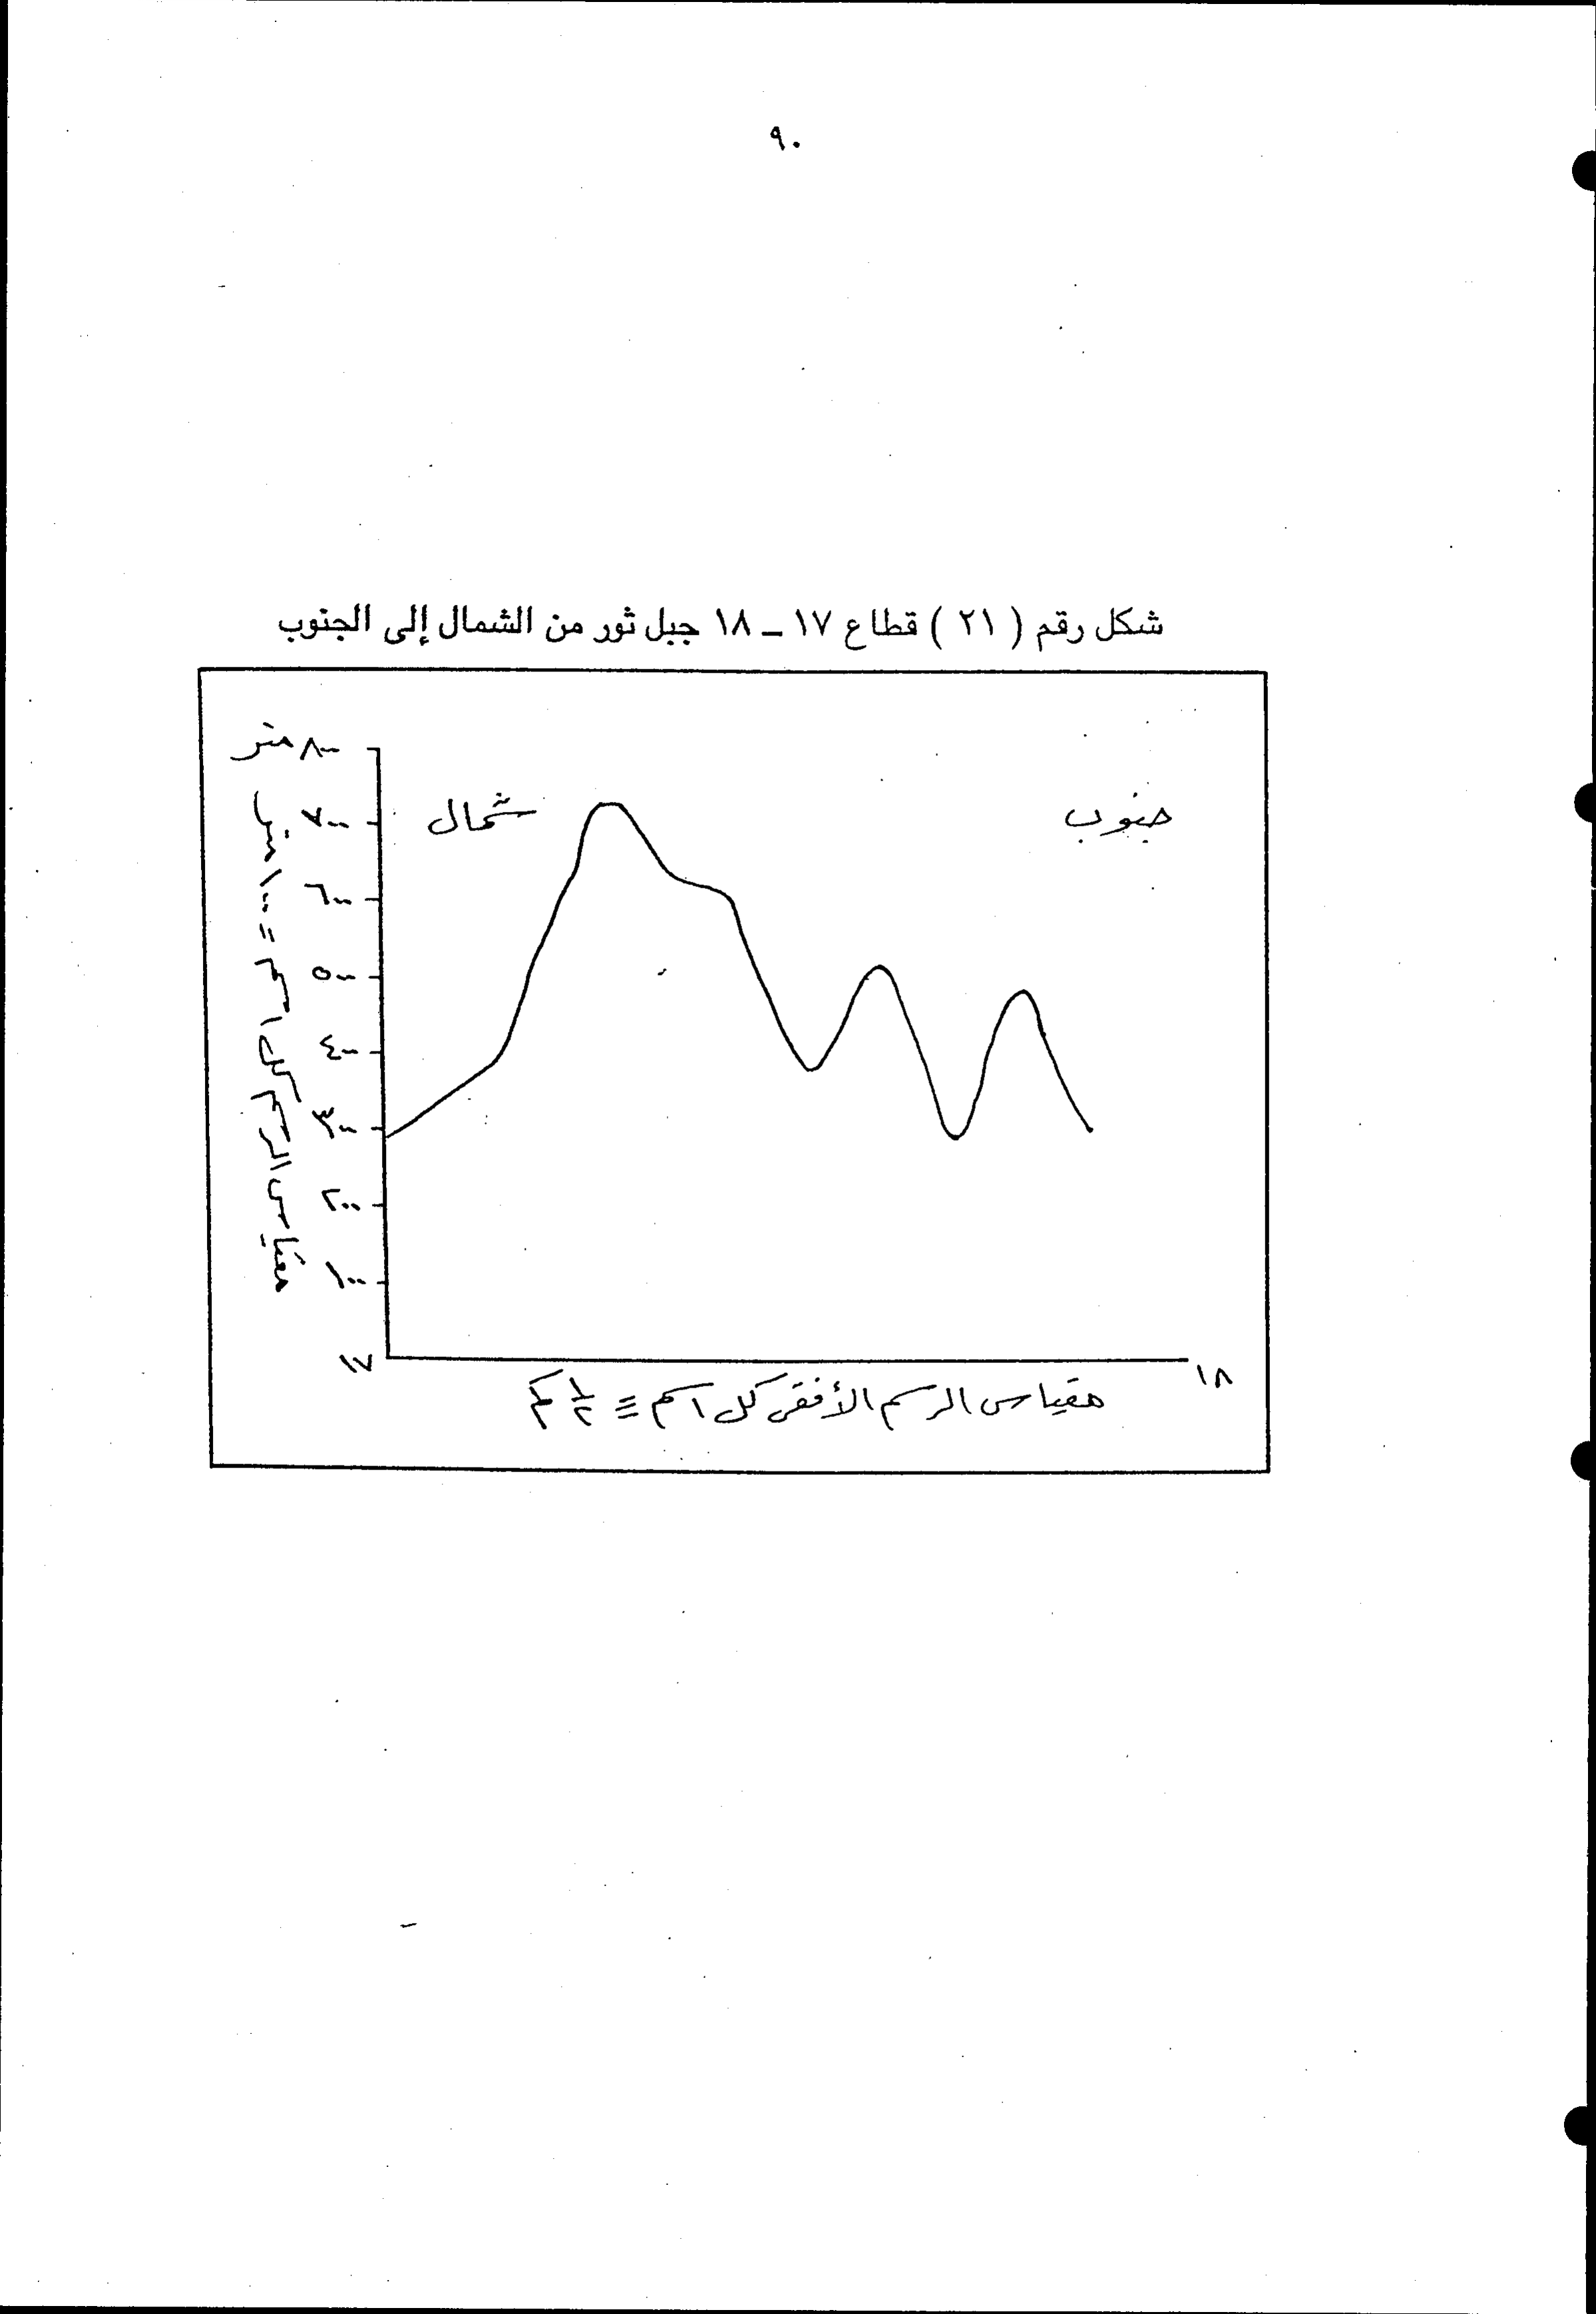 ٩٠
شكل رقم ( ٢١ ) قطاع ١٧ ــ ١٨ جبل ثور من الشمال إلى الجنوب
٨٠٠ متر
٧٠٠
٦٠٠
٥٠٠
٤٠٠
٣٠٠
٢٠٠
١٠٠
شمال
جنوب
مقياس الرسم كل ١ سم = ١٠٠ متر
١٧
١٨
مقياس الرسم الأفقى كل ١ سم = ١/٢ كم